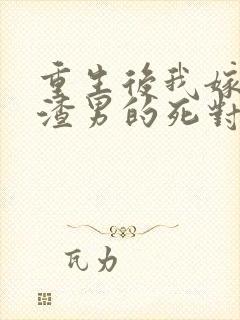 重生後我嫁
渣男的死對
瓦力